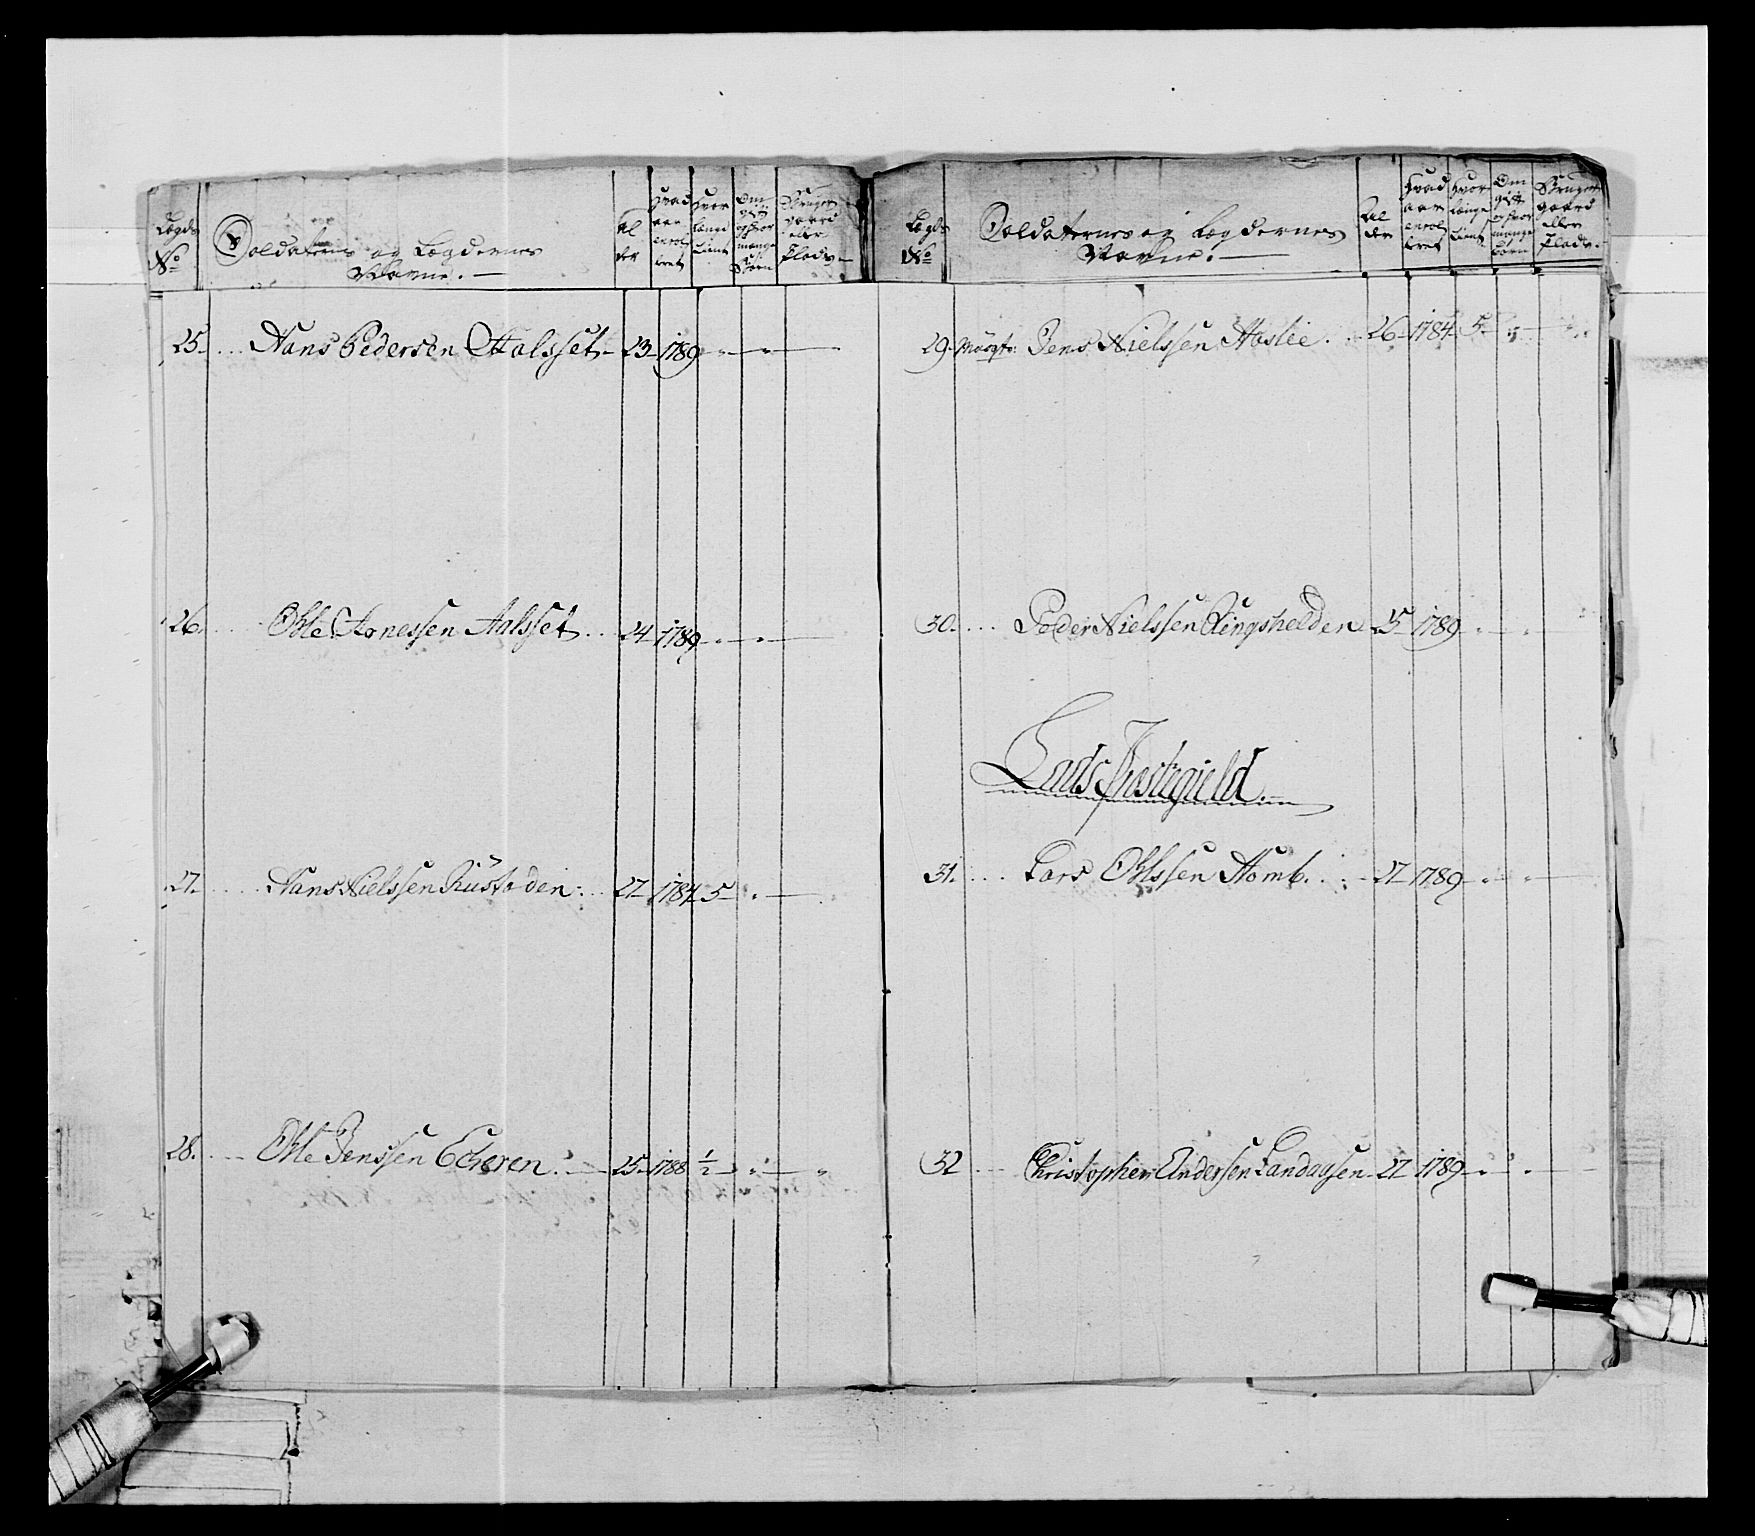 Lægds No
Soldaternes og Lægdernes Navne.
Al der
Hvad aar enrol leret
Hvor længe tient
Om gift og hvor mange Børn
Bruger gaard eller Plads
25. Hans Pedersen Aalsset 23 1789 " "
26. Ohle Arnessen Aalsset 24 1789 " "
27. Hans Nielssen Rustøden 27 1784 5 "
28. Ohle Jenssen Echeren 25 1788 1/2 " "
Lægds No
Soldaternes og Lægdernes Navne.
Al der
Hvad aar enrol leret
Hvor længe tient
Om gift og hvor mange Børn
Bruger gaard eller Plads.
29. Jens Nielssen Aaslie 26 1784 5 " "
30. Peder Nielssen Ringshelden 25 1789 " "
Lands Præstegield
31. Lars Ohlssen Homb. 27 1789 " "
32 Christopher Andersen Landaasen 27 1789 " "